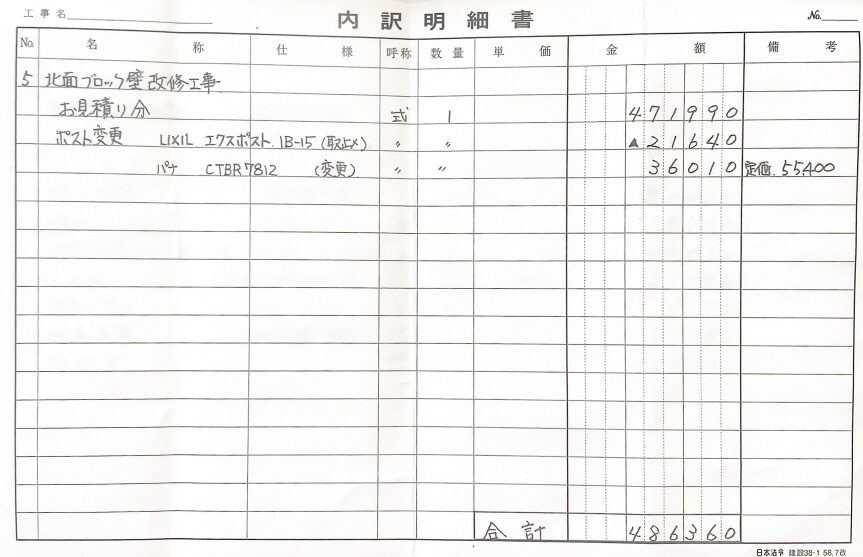 工事名
内訳明細書
No.
No. 名称 仕様 呼称 数量 単価 金額 備考
5 北面ブロック壁改修工事
お見積り分 式 1 471990
ポスト変更 LIXIL エクスポスト.1B-15(取止メ) 〃 〃 ▲21640
パナ CTBR7812 (変更) 〃 〃 36010 定価.55400
合計 486360
日本法令 建設38-1 58.7改